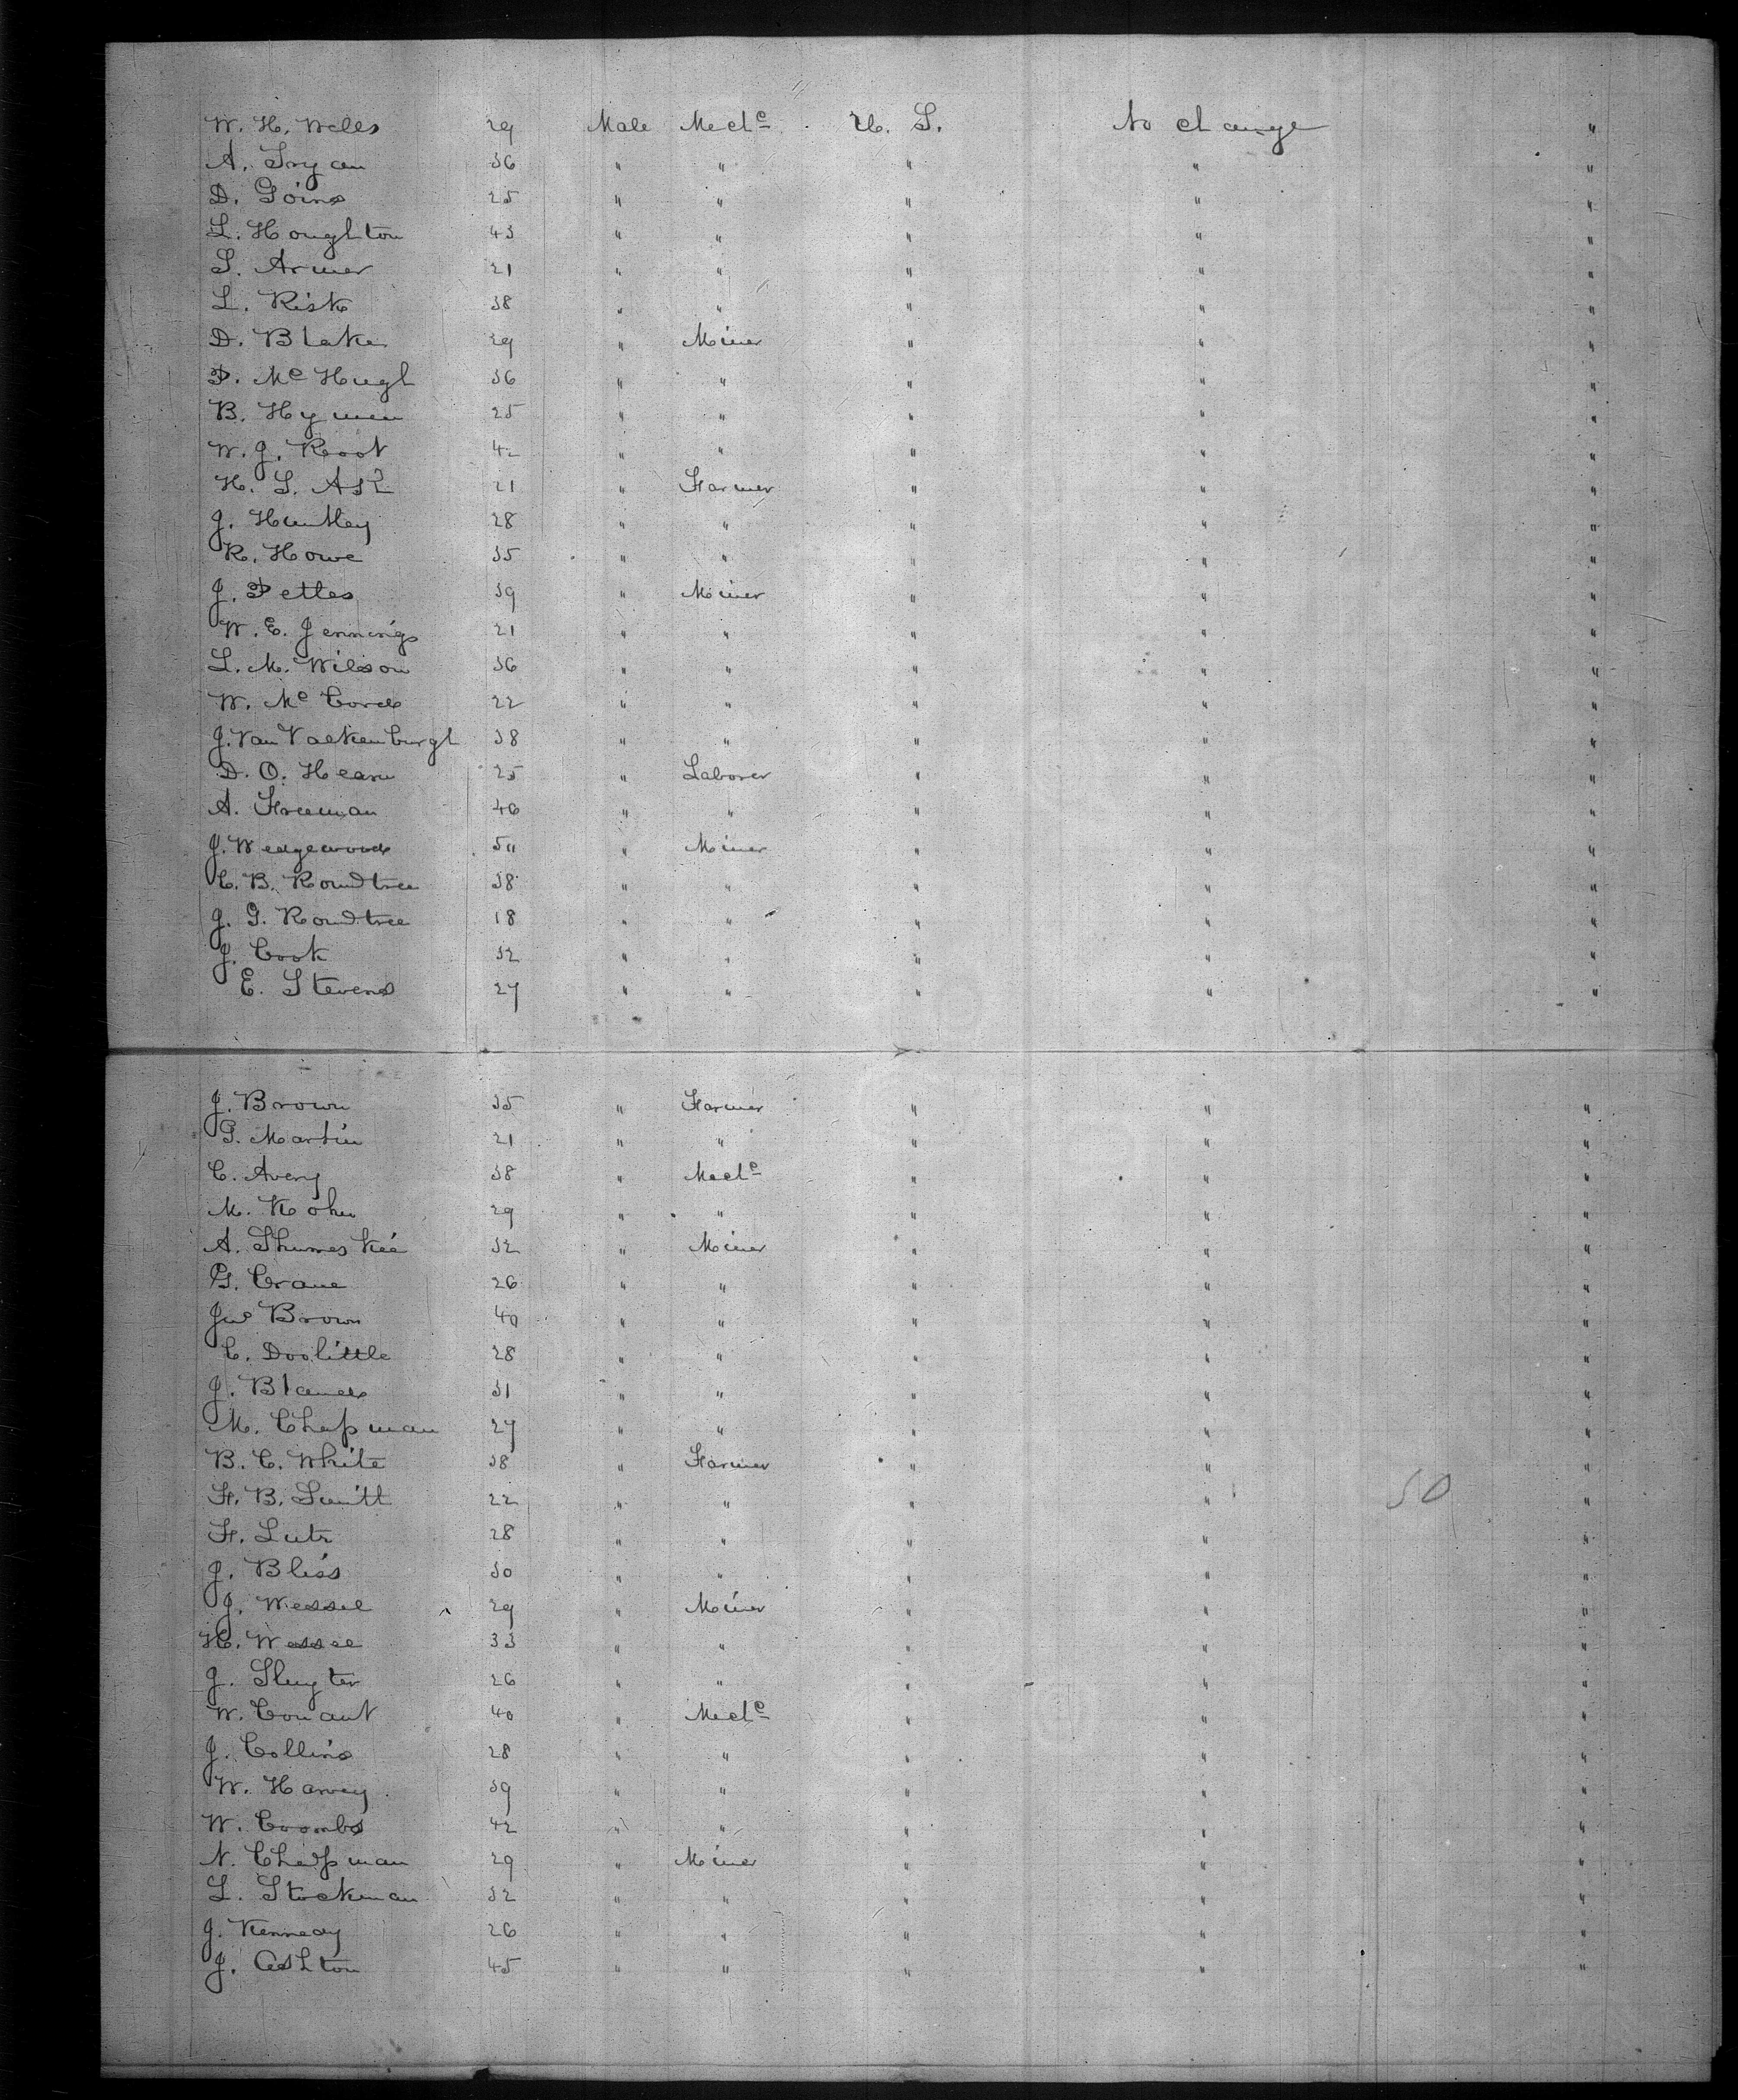 W. H. Wells 29 Male Mechc U. S. No change "
A. Tryan 36 " " " " "
D. Goins 25 " " " " "
L. Houghton 43 " " " " "
S. Armer 21 " " " " "
L. Risk 38 " " " " "
D. Blake 29 " Miner " " "
P. Mc Hugh 36 " " " " "
B. Hymen 25 " " " " "
W. J. Root 42 " " " " "
H. S. 21 " Farmer " " "
J. Huntley 28 " " " " "
R. Howe 35 " " " " "
J. Pettes 39 " Miner " " "
W. E. Jennings 21 " " " " "
L. M. Wilson 36 " " " " "
W. Mc Cord 22 " " " " "
J. Van Valkenburgh 38 " " " " "
D. O. Hearn 25 " Laborer " " "
A. Freeman 46 " " " " "
J. Wedgewood 50 " Miner " " "
C. B. Roundtree 38 " " " " "
J. G. Roundtree 18 " " " " "
J. Cook 32 " " " " "
E. Stevens 27 " " " " "
J. Brown 35 " Farmer " " "
G. Martin 21 " " " " "
C. Avery 38 " Mechc " " "
M. Kohn 29 " " " " "
A. 32 " Miner " " "
G. Crane 26 " " " " "
Jno Brown 40 " " " " "
C. Doolittle 28 " " " " "
J. Bland 31 " " " " "
M. Chapman 27 " " " " "
B. C. White 38 " Farmer " " "
F. B. Smith 22 " " " " 50 "
F. Lutz 28 " " " " "
J. Bliss 30 " " " " "
J. Wessel 29 " Miner " " "
H. Wessel 33 " " " " "
J. Sluyter 26 " " " " "
W. Conant 40 " Mechc " " "
J. Collins 28 " " " " "
W. Harvey 39 " " " " "
W. Coombs 42 " " " " "
N. Chapman 29 " Miner " " "
L. Stockman 32 " " " " "
J. Kennedy 26 " " " " "
J. Ashton 45 " " " " "